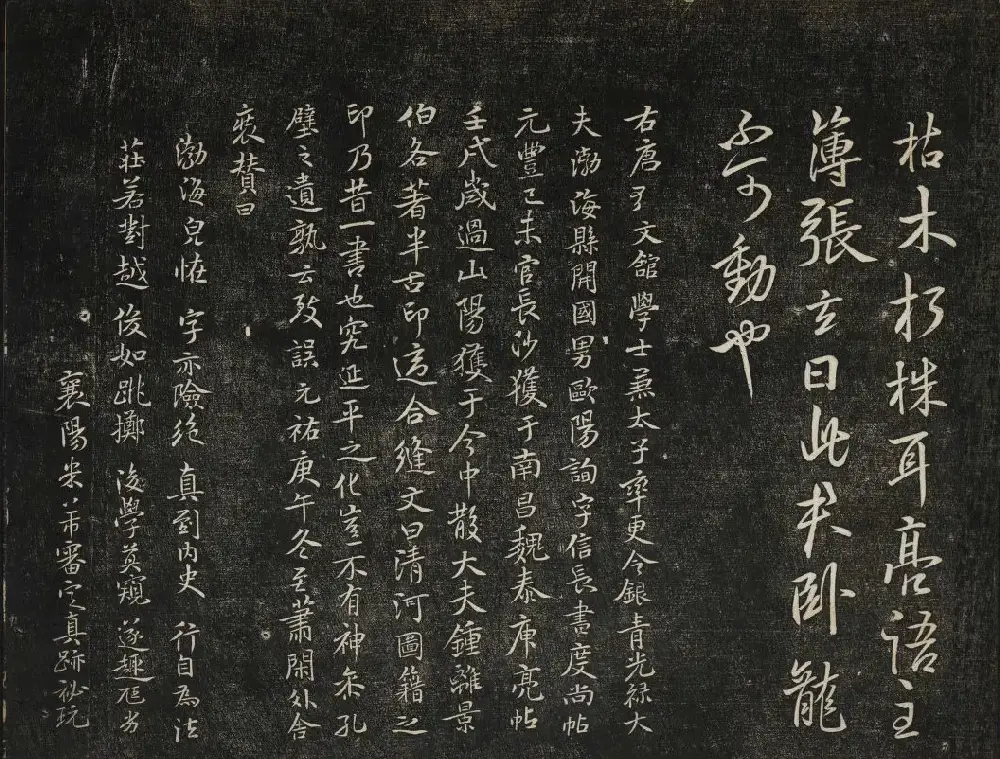 枯木朽株耳亮語主
簿張玄曰此人卧龍
不可動也
右唐弘文館學士兼太子率更令銀青光祿大
夫渤海縣開國男歐陽詢字信長書度尚帖
元豐己未官長沙獲于南昌魏泰庾亮帖
壬戌歲過山陽獲于今中散大夫鍾離景
伯各著半古印這合縫文曰清河圖籍之
印乃昔一書也究延平之化豈不有神乎孔
壁之遺孰云致誤元祐庚午冬至蕭閑外舍
裦贊曰
渤海皃怪 字亦險絕 真到內史 行自為法
莊若對越 俊如跳擲 後學莫窺 遂趣尫劣
襄陽米芾審定真跡祕玩